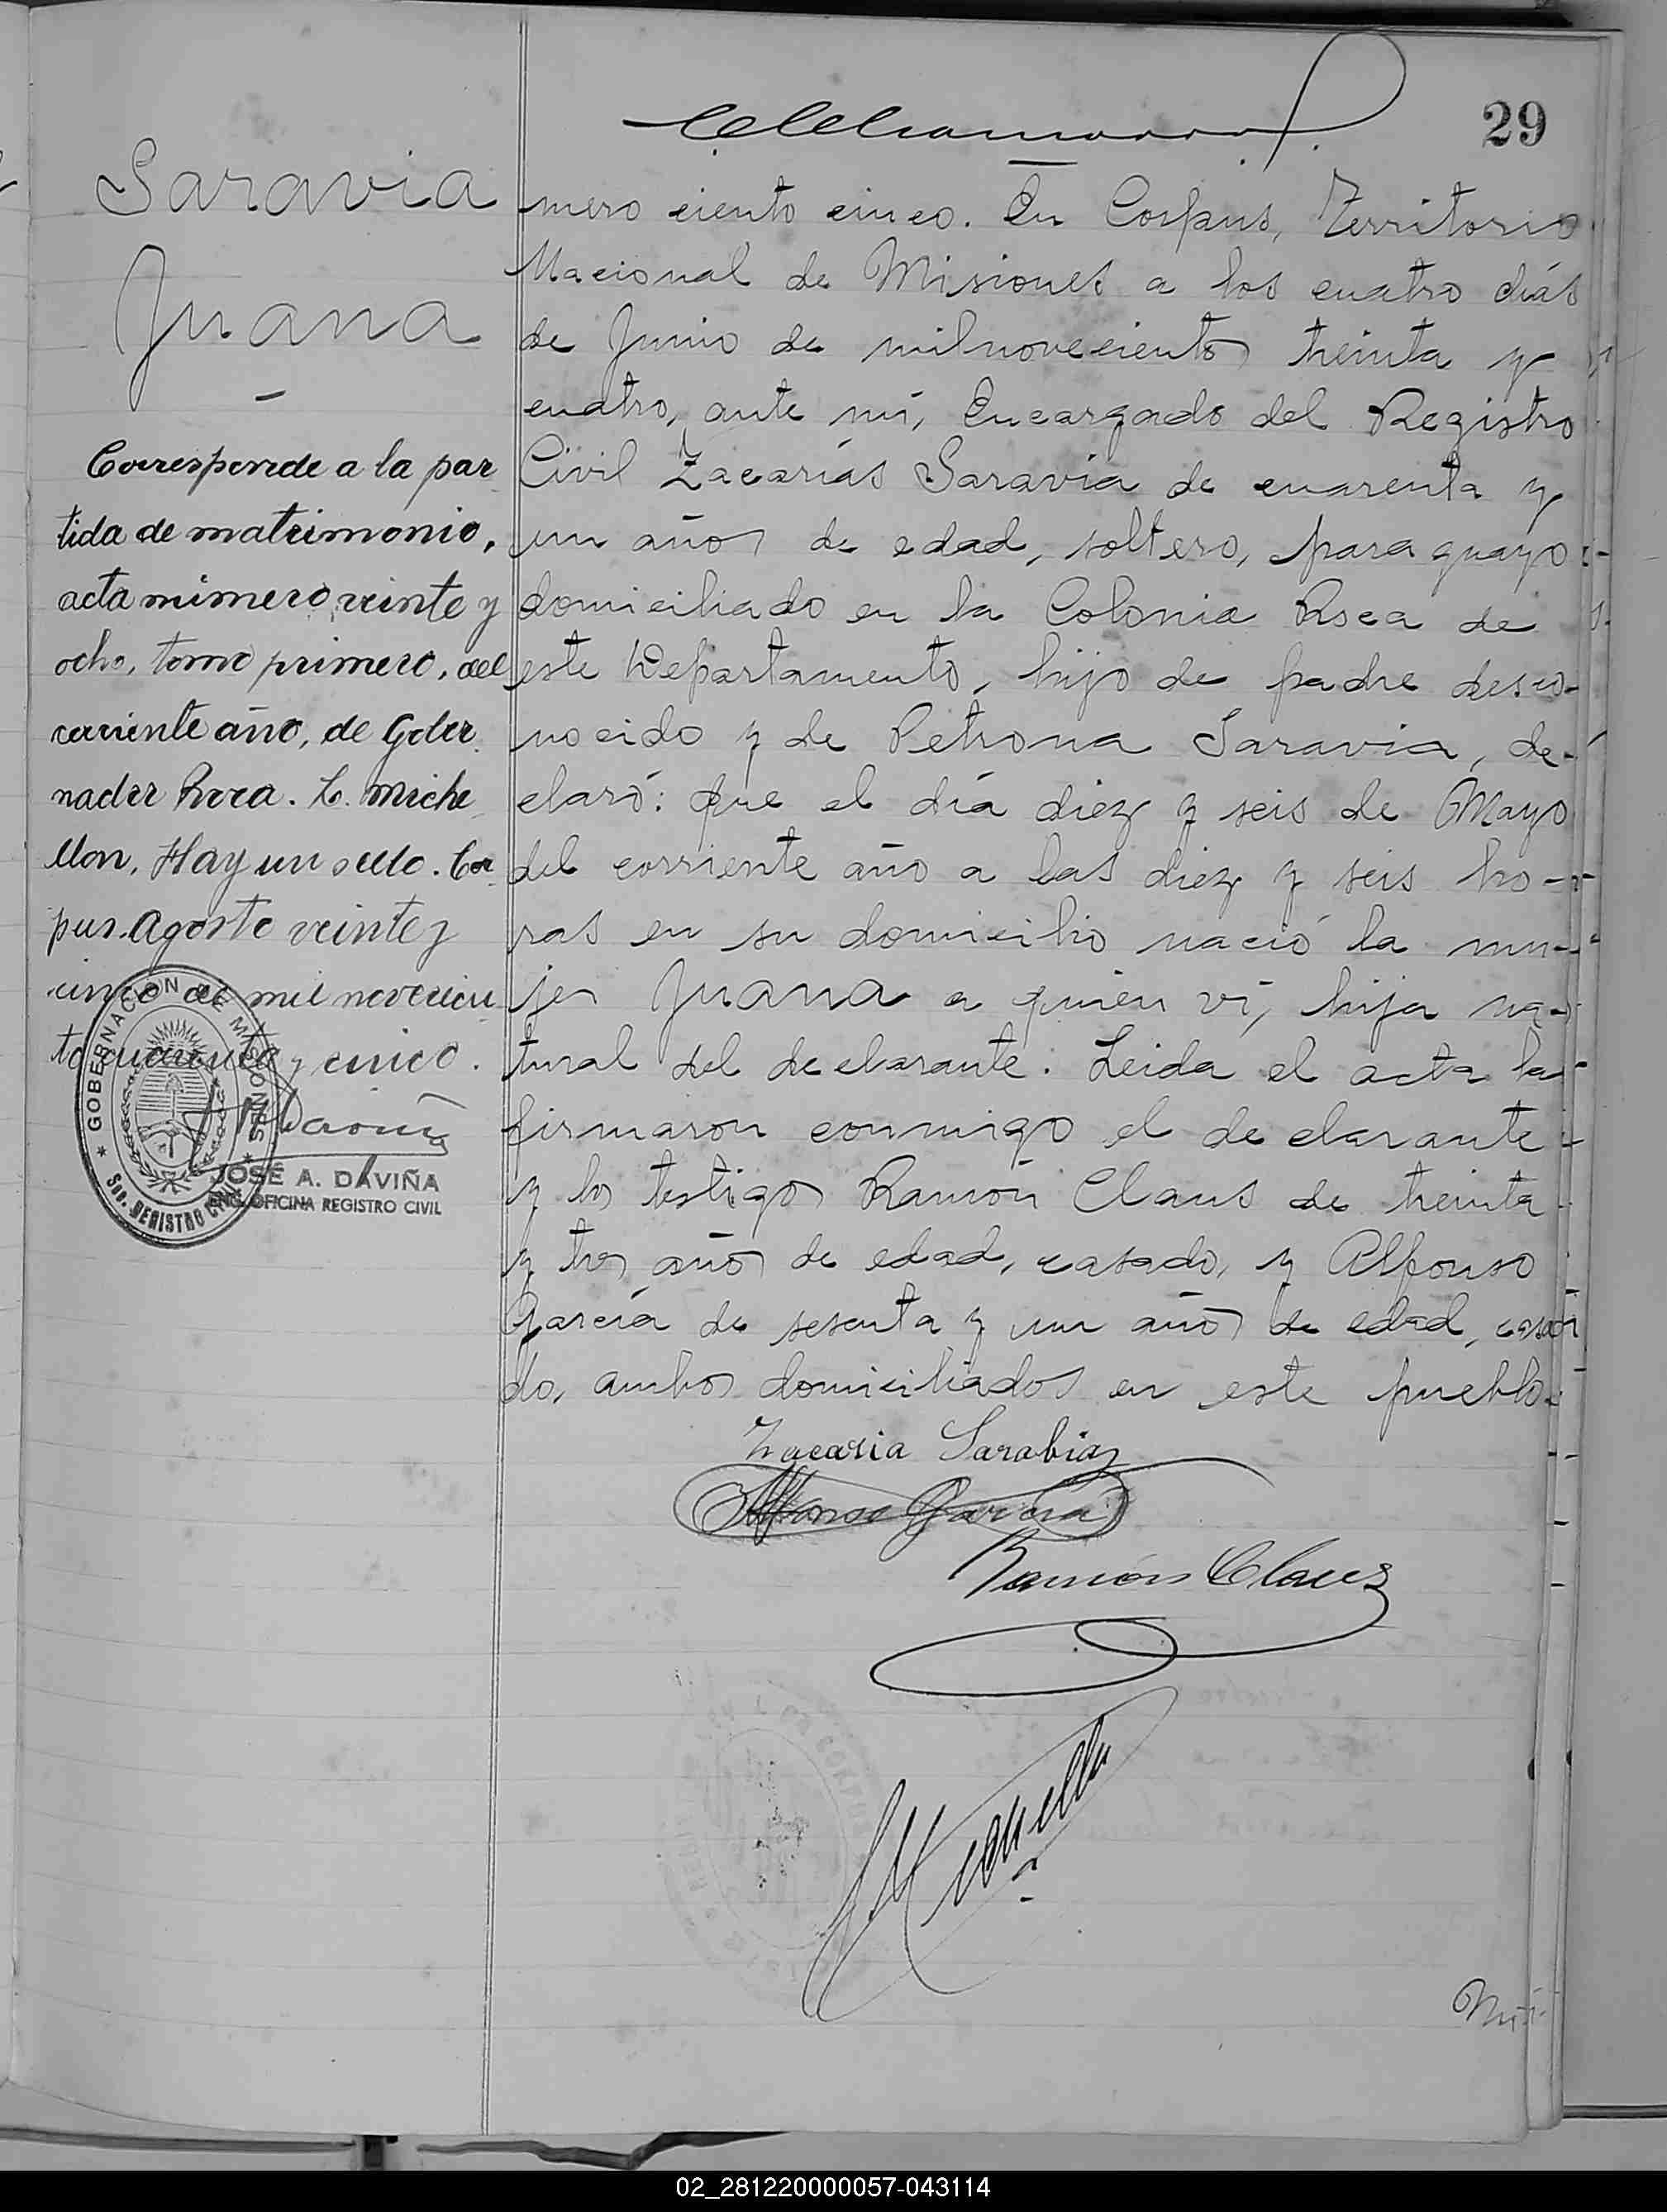 29
Saravia
Juana
Corresponde a la par
tida de matrimonio,
acta número veinte y
ocho, tomo primero, del
corriente año, de Gober
nador Roca. L. Miche
llon. Hay un sello. Cor
pus. Agosto veinte y
cinco de mil novecien
to cuarenta y cinco.
GOBERNACION DE MISIONES
Sec. REGISTRO CIVIL
JOSÉ A. DAVIÑA
ENC. OFICINA REGISTRO CIVIL
mero ciento cinco. En Corpus, Territorio
Nacional de Misiones a los cuatro días
de Junio de milnovecientos treinta y
cuatro, ante mí, Encargado del Registro
Civil Zacarías Saravia de cuarenta y
un años de edad, soltero, paraguayo
domiciliado en la Colonia Roca de
este Departamento, hijo de padre desco-
nocido y de Petrona Saravia, de-
claró: que el día diez y seis de Mayo
del corriente año a las diez y seis ho-
ras en su domicilio nació la mu-
jer Juana a quien ví, hija na-
tural del declarante. Leida el acta la
firmaron conmigo el declarante
y los testigos Ramón Claus de treinta
y tres años de edad, casado, y Alfonso
García de sesenta y un años de edad, casa
do, ambos domiciliados en este pueblo.
Zacaria Sarabia
Alfonso Garcia
Ramón Claus
02_281220000057-043114